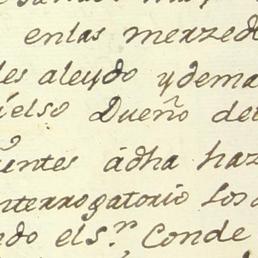 enlas merzed
les aleydo ydema
ielso Dueño de
untes ádha haz
nterrogatorio Los
ndo el S.ʳⁿ Conde